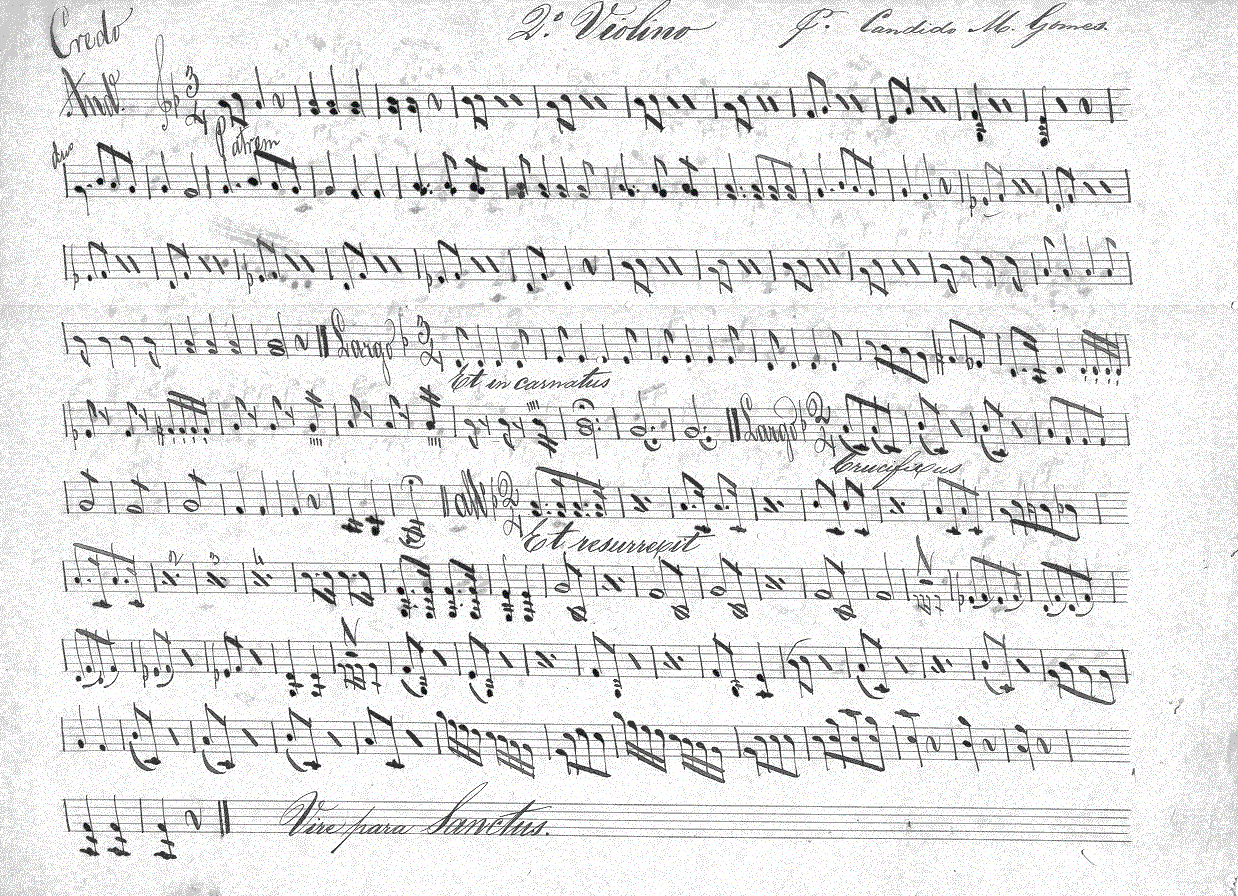 Credo 2º Violino P. Candido M. Gomes.
Andᵉ. 3 4
Patrem
duo
Largo 3 2
Et in carnatus
Largo 2 4
Crucifixus
all 2 4
Et resurrexit
2 3 4
Vire para Sanctus.